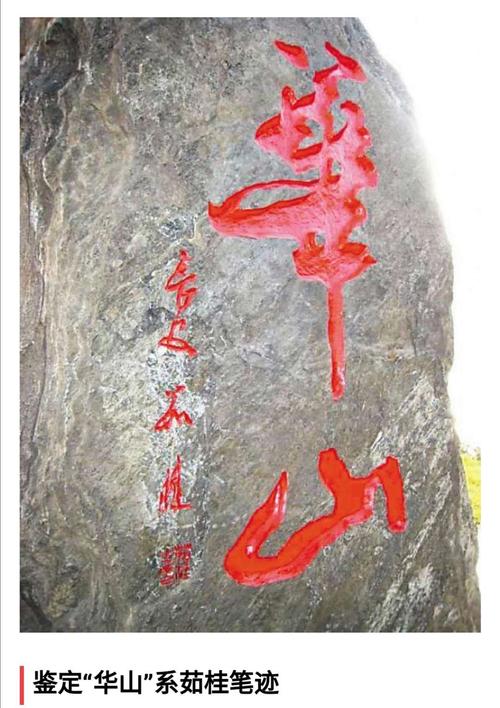 華山
長安茹桂
鉴定“华山”系茹桂笔迹